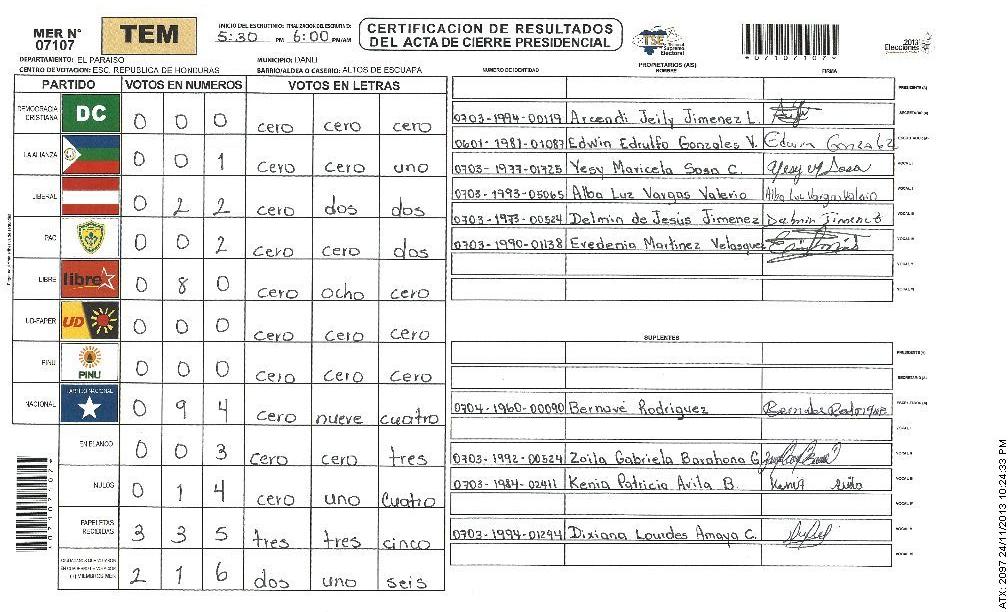 MER N° 07107
TEM
INICIO DEL ESCRUTINIO: FINALIZACION DEL ESCRUTINIO:
5:30 PM 6:00 PM/AM
CERTIFICACION DE RESULTADOS
DEL ACTA DE CIERRE PRESIDENCIAL
TSE Tribunal Supremo Electoral
2013 Elecciones
*07107107*
DEPARTAMENTO: EL PARAISO
MUNICIPIO: DANLI
CENTRO DE VOTACION: ESC. REPUBLICA DE HONDURAS
BARRIO/ALDEA O CASERIO: ALTOS DE ESCUAPA
PARTIDO VOTOS EN NUMEROS VOTOS EN LETRAS
DEMOCRACIA CRISTIANA DC 0 0 0 cero cero cero
LA ALIANZA 0 0 1 cero cero uno
LIBERAL 0 2 2 cero dos dos
PAC 0 0 2 cero cero dos
LIBRE libre 0 8 0 cero ocho cero
UD-FAPER UD 0 0 0 cero cero cero
PINU PINU 0 0 0 cero cero cero
NACIONAL PARTIDO NACIONAL 0 9 4 cero nueve cuatro
EN BLANCO 0 0 3 cero cero tres
NULOS 0 1 4 cero uno cuatro
PAPELETAS RECIBIDAS 3 3 5 tres tres cinco
2 1 6 dos uno seis
PROPIETARIOS (AS)
NUMERO DE IDENTIDAD NOMBRE FIRMA
PRESIDENTE(A)
0703-1994-00119 Arcendi Jeily Jimenez L. SECRETARIO(A)
0601-1981-01087 Edwin Edrulfo Gonzales V. Edwin Gonzalez
0703-1977-01725 Yesy Maricela Sosa C. Yesy M Sosa VOCAL I
0703-1993-05065 Alba Luz Vargas Valerio Alba Luz Vargas Valerio VOCAL II
0703-1973-00524 Delmin de Jesús Jimenez Delmin Jimenez VOCAL III
0703-1990-01138 Evedenia Martinez Velasquez
SUPLENTES
PRESIDENTE(A)
SECRETARIO(A)
0704-1960-00090 Bernavé Rodriguez
0703-1992-00524 Zoila Gabriela Barahona G.
0703-1984-02411 Kenia Patricia Avila B. Kenia Avila
0703-1994-01294 Dixiana Lourdes Amaya C.
ATX: 2097 24/11/2013 10:24:33 PM